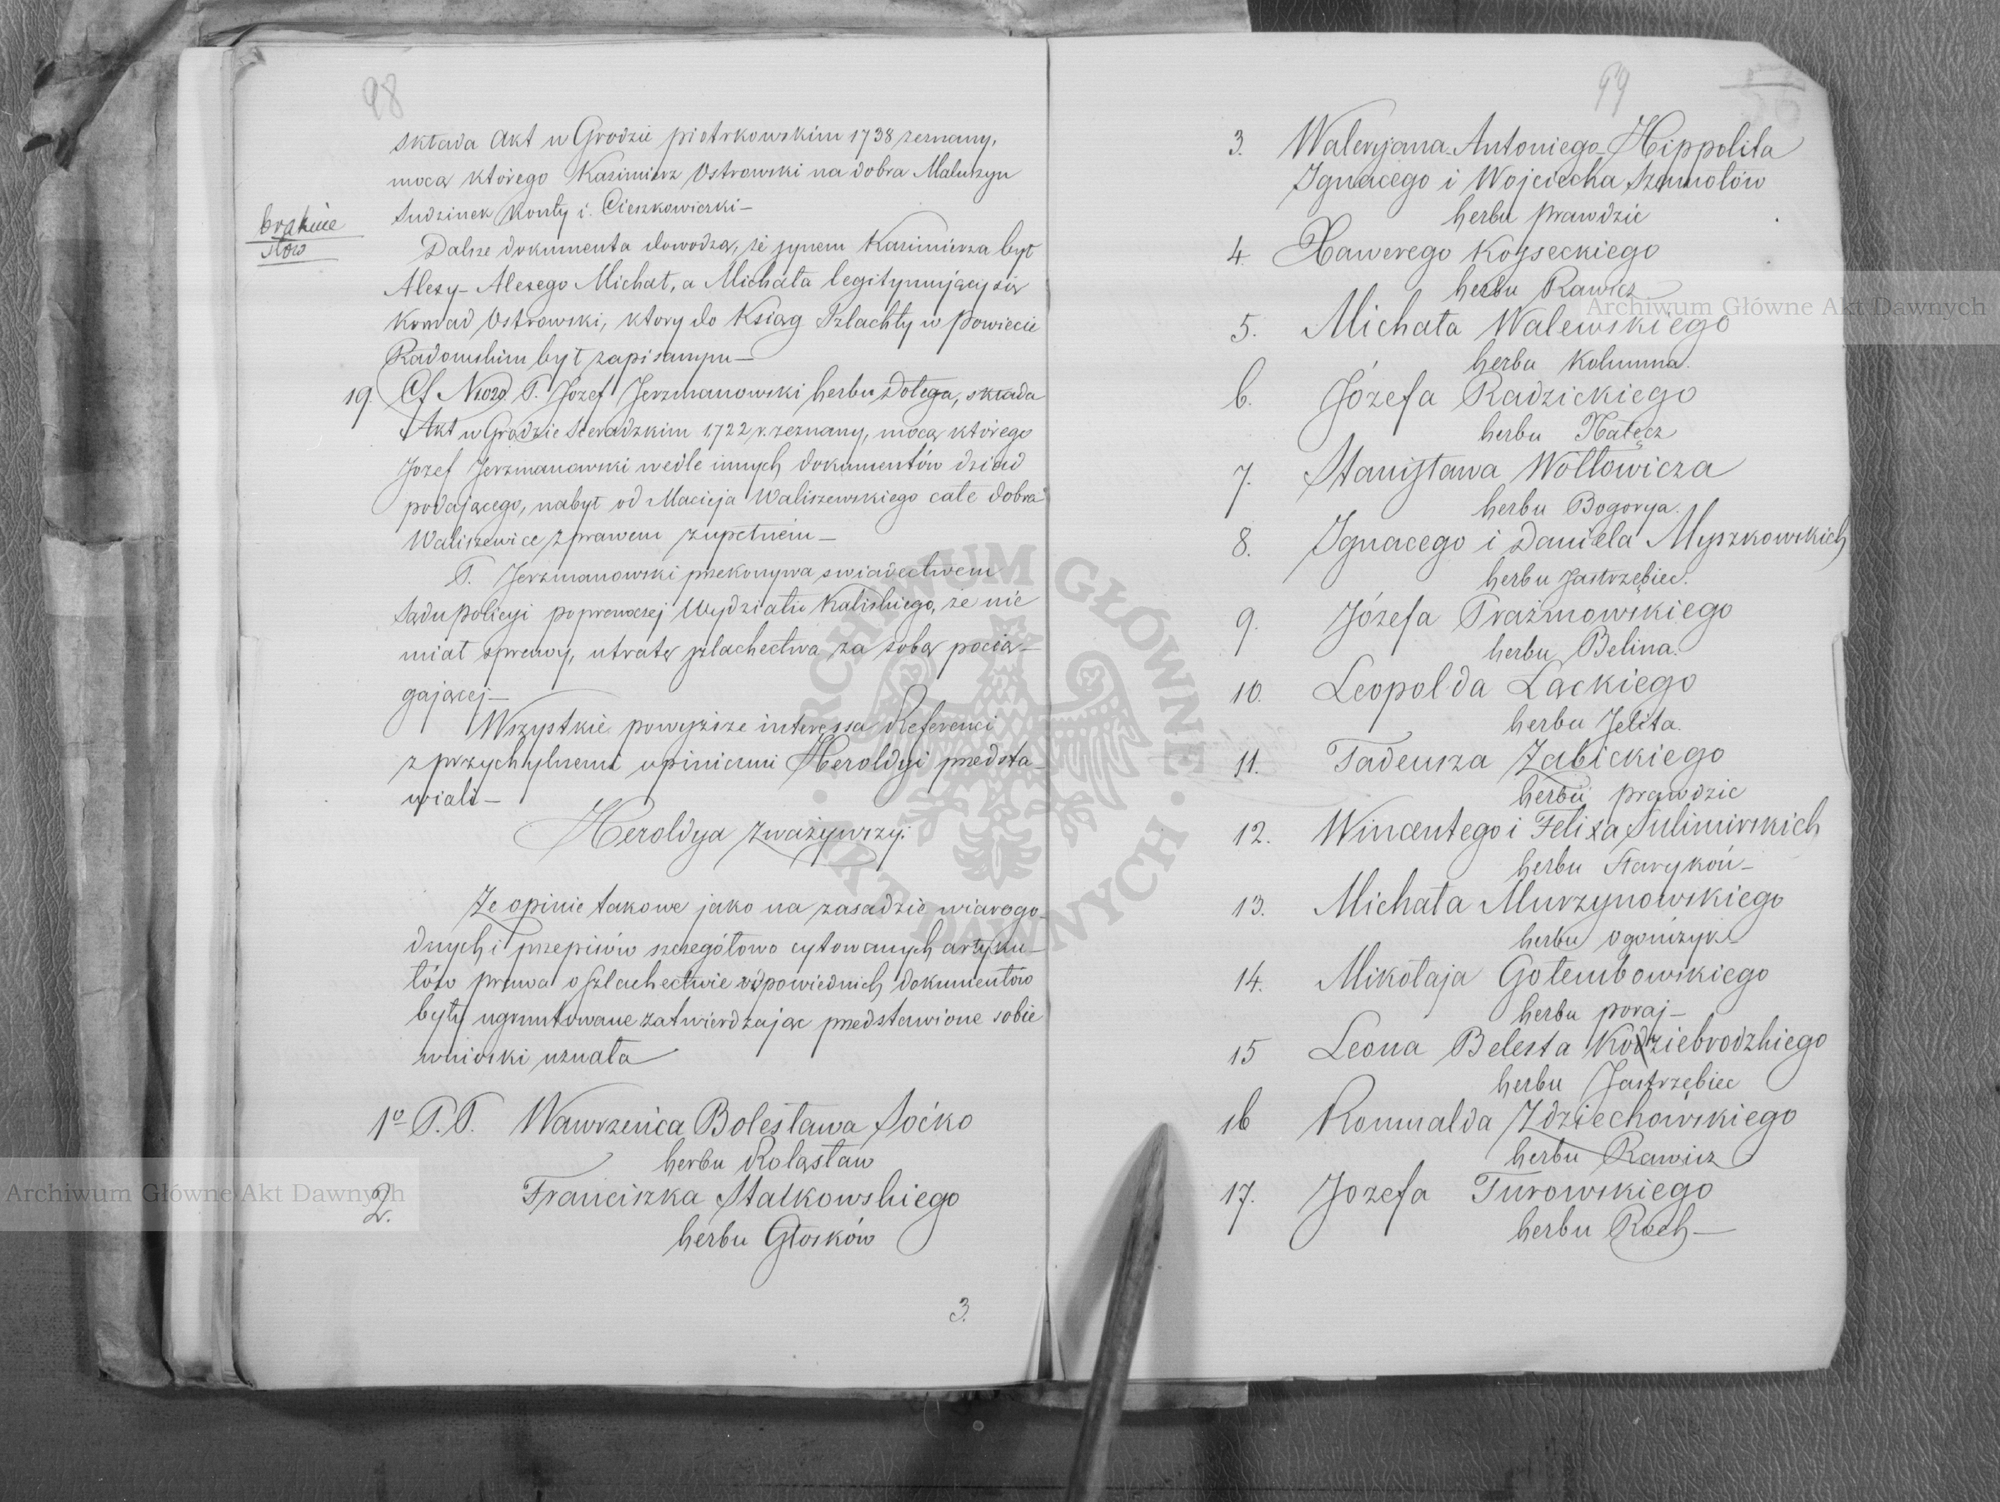 98
składa Akt w Grodzie piotrkowskim 1738 zeznany,
mocą którego Kazimierz Ostrowski na dobra Maluszyn
Sudzinek Konty i Cieszkowierski —
brakuie
słów
Dalsze dokumenta dowodzą, że synem Kazimierza był
Alexy – Alexego Michał, a Michała legitymujący się
Konrad Ostrowski, ktory do Ksiąg Szlachty w powiecie
Radomskim był zapisanym —
19. Cf N1020. P. Józef Jerzmanowski herbu Dołęga, składa
Akt w Grodzie Sieradzkim 1722 r. zeznany, mocą którego
Jozef Jerzmanowski wedle innych dokumentów dziad
podającego, nabył od Macieja Waliszewskiego całe dobra
Waliszewice z prawem zupełnem —
P. Jerzmanowski przekonywa swiadectwem
Sądu policyi poprawczej Wydziału Kaliskiego, że nie
miał sprawy, utratę szlachectwa za sobą pocią-
gającej —
Wszystkie powyższe interessa Referenci
z przychylnemi opiniami Heroldyi przedsta-
wiali —
Heroldya zważywszy:
Ze opinie takowe jako na zasadzie wiarogo-
dnych i przepisów szczegółowo cytowanych artyku-
łów prawa o Szlachectwie odpowiednich dokumentów
były ugruntowane zatwierdzając przedstawione sobie
wnioski uznała
1º P.P. Wawrzeńca Bolesława Soćko
herbu Rolasław
2. Franciszka Stalkowskiego
herbu Głosków
3.
99
3. Waleryjana Antoniego Hippolita
Ignacego i Wojciecha Szamotów
herbu prawdzic
4. Xawerego Koyseckiego
herbu Rawicz
5. Michała Walewskiego
herbu Kolumna.
6. Józefa Radzickiego
herbu Nałęcz
7. Stanisława Wołłowicza
herbu Bogorya.
8. Ignacego i Daniela Myszkowskich
herbu Jastrzębiec.
9. Józefa Prażmowskiego
herbu Belina.
10. Leopolda Łąckiego
herbu Jelita.
11. Tadeusza Zabickiego
herbu prawdzic
12. Wincentego i Felixa Sulimirskich
herbu Starykoń –
13. Michała Murzynowskiego
herbu Ogończyk
14. Mikołaja Gołembowskiego
herbu poraj –
15 Leona Belesta Kodziebrodzkiego
herbu Jastrzębiec
16 Romualda Zdziechowskiego
herbu Rawicz
17. Jozefa Turowskiego
herbu Roch —
Archiwum Główne Akt Dawnych
Archiwum Główne Akt Dawnych
ARCHIWUM GŁÓWNE AKT DAWNYCH